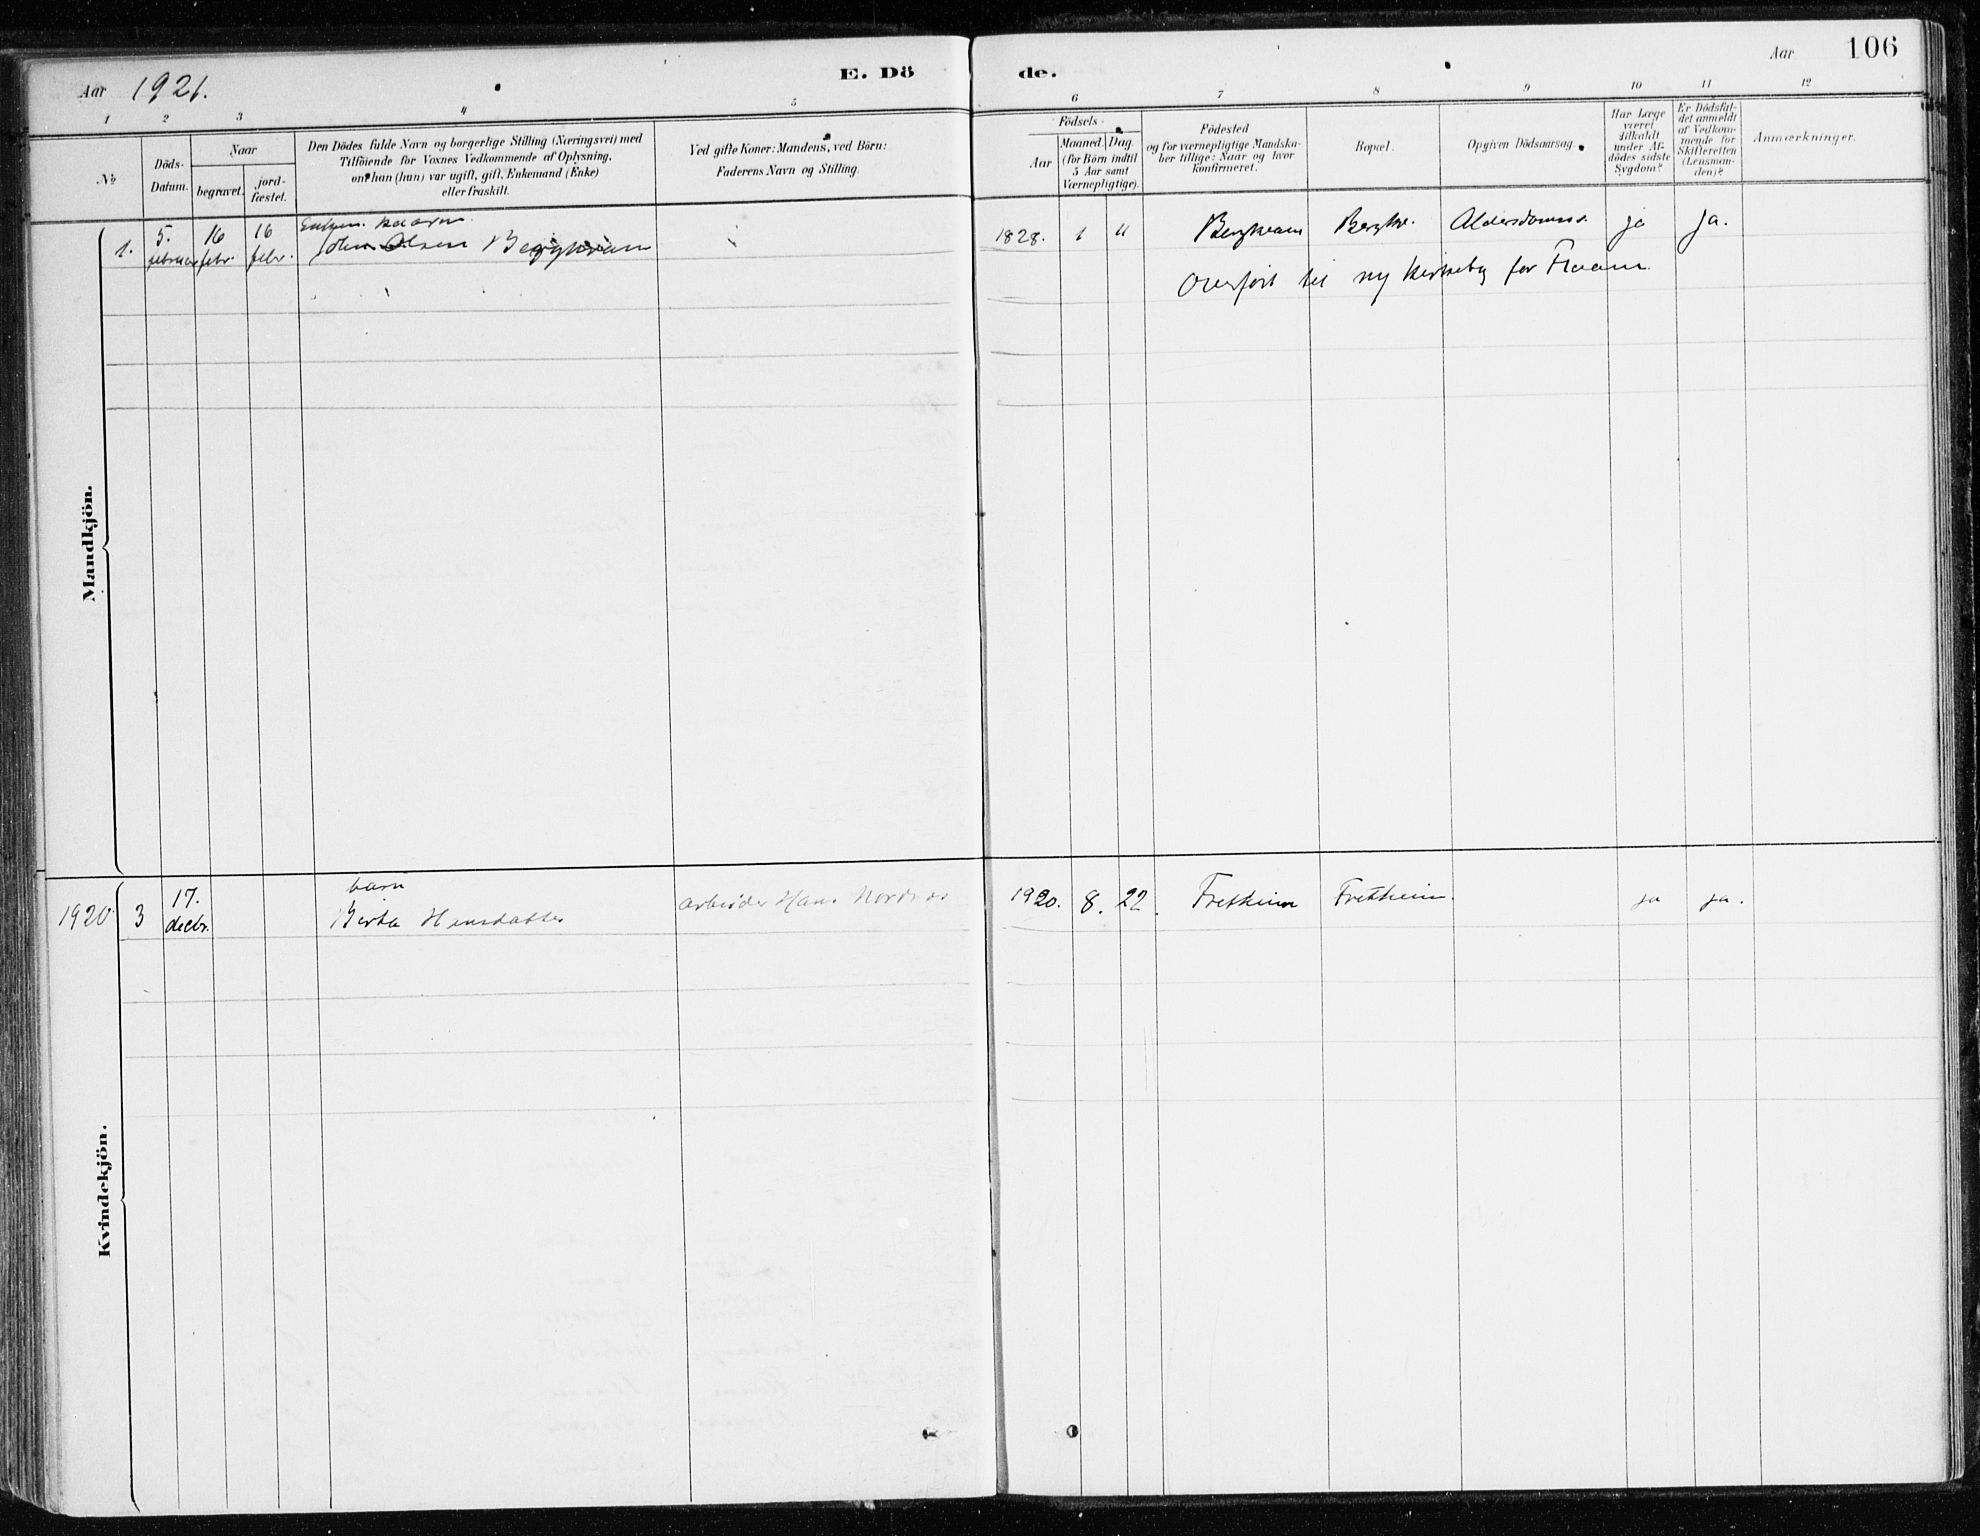 Aar 1921.
E. Dö
de.
Aar
106
1 2 3 4 5 6 7 8 9 10 11 12
№
Döds-
Datum.
Naar
begravet.
jord-
fæstet.
Den Dödes fulde Navn og borgerlige Stilling (Næringsvei) med
Tilföiende for Voxnes Vedkommende af Oplysning,
om han (hun) var ugift, gift, Enkemand (Enke)
eller fraskilt.
Ved gifte Koner: Mandens, ved Börn:
Faderens Navn og Stilling.
Födsels-
Aar
Maaned.
Dag
(for Börn indtil
5 Aar samt
Værnepligtige).
Födested
og for værnepligtige Mandska-
ber tillige: Naar og hvor
konfirmeret.
Bopæl.
Opgiven Dödsaarsag.
Har Læge
været
tilkaldt
under Af-
dödes sidste
Sygdom?
Er Dödsfal-
det anmeldt
af Vedkom-
mende for
Skifteretten
(Lensman-
den)?
Anmærkninger.
Mandkjön.
1. 5. februar 16 febr. 16 febr.
Olsen Bergkvam
1828. 1 11 Bergkvam Bergkv. Alderdomss. ja ja.
Overført til ny kirkebog for Flaam
Kvindekjön.
1920 3 17. decbr.
barn
Berta Hansdatter arbeider Hans 1920. 8. 22. Fretheim Fretheim. ja ja.